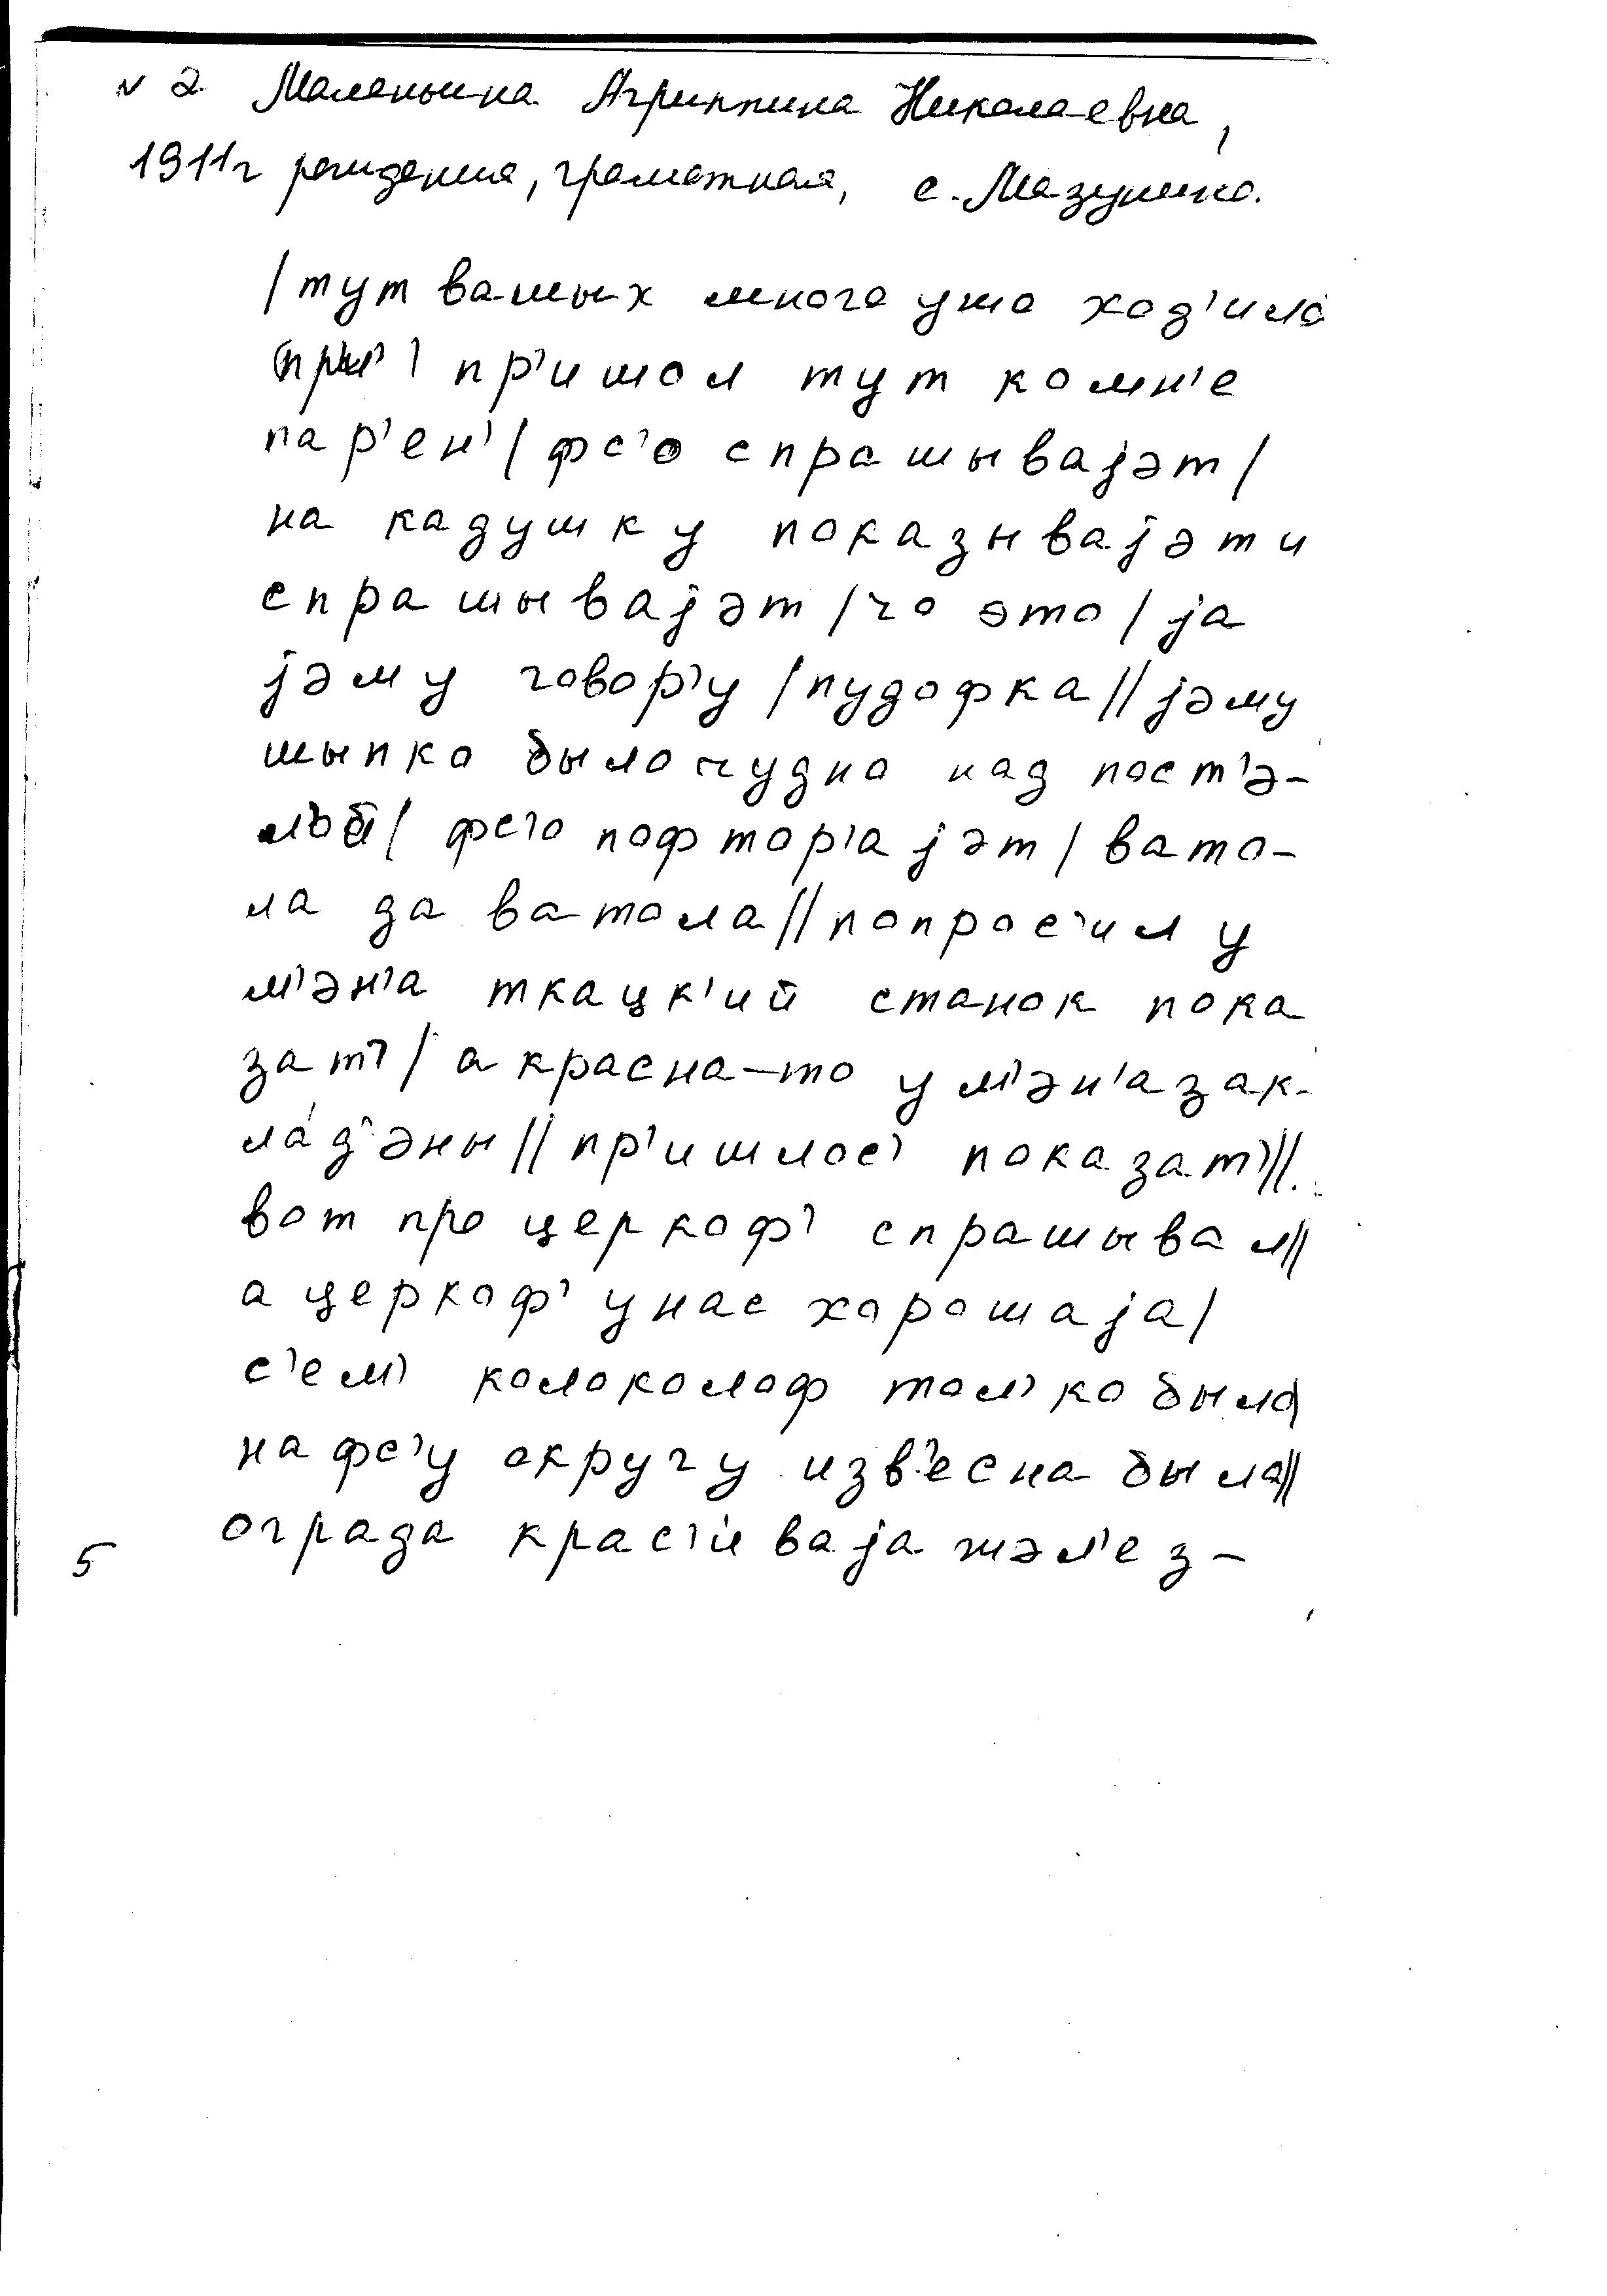 № 2 Маленьина Агриппина Николаевна,
1911г рождения, грамотная, с. Мазунино.
/тут вашых много ужо ход'ило
пр'ишол тут комн'е
пар'ен'/ фс'о спрашывајэт/
на кадушку показывајэт и
спрашывајэт /чо это/ ја
јэму говор'у /пудофка// јэму
шыпко было чудно над пост'э-
л'ой/ фс'о пофтор'ајэт/ вато-
ла да ватола// попрос'ил у
м'эн'а ткацк'ий станок пока
зат'/ а красна-то у м'эн'а зак-
ла́д'эны// пр'ишлос' показат'//
вот про церкоф' спрашывал//
а церкоф' у нас хорошаја/
с'ем' колоколоф тол'ко было/
на фс'у округу изв'есна была//
ограда крас'иваја жэл'ез-
5